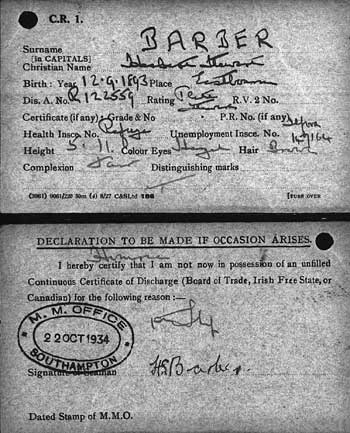 C.R. 1.
Surname BARBER
[in CAPITALS]
Christian Name Herbert
Birth: Year 12.9.1893 Place Eastbourne
Dis. A. No. R 122559 Rating R.V. 2 No.
Certificate (if any) Grade & No P.R. No. (if any)
Health Insce. No. Refuge Unemployment Insce. No.
Height 5. 11. Colour Eyes Hair
Complexion Fair Distinguishing marks
[PLEASE OVER
DECLARATION TO BE MADE IF OCCASION ARISES.
I hereby certify that I am not now in possession of an unfilled
Continuous Certificate of Discharge (Board of Trade, Irish Free State, or
Canadian) for the following reason :—
M. M. OFFICE
22 OCT 1934
SOUTHAMPTON
Signature of Seaman HSBarber.
Dated Stamp of M.M.O.